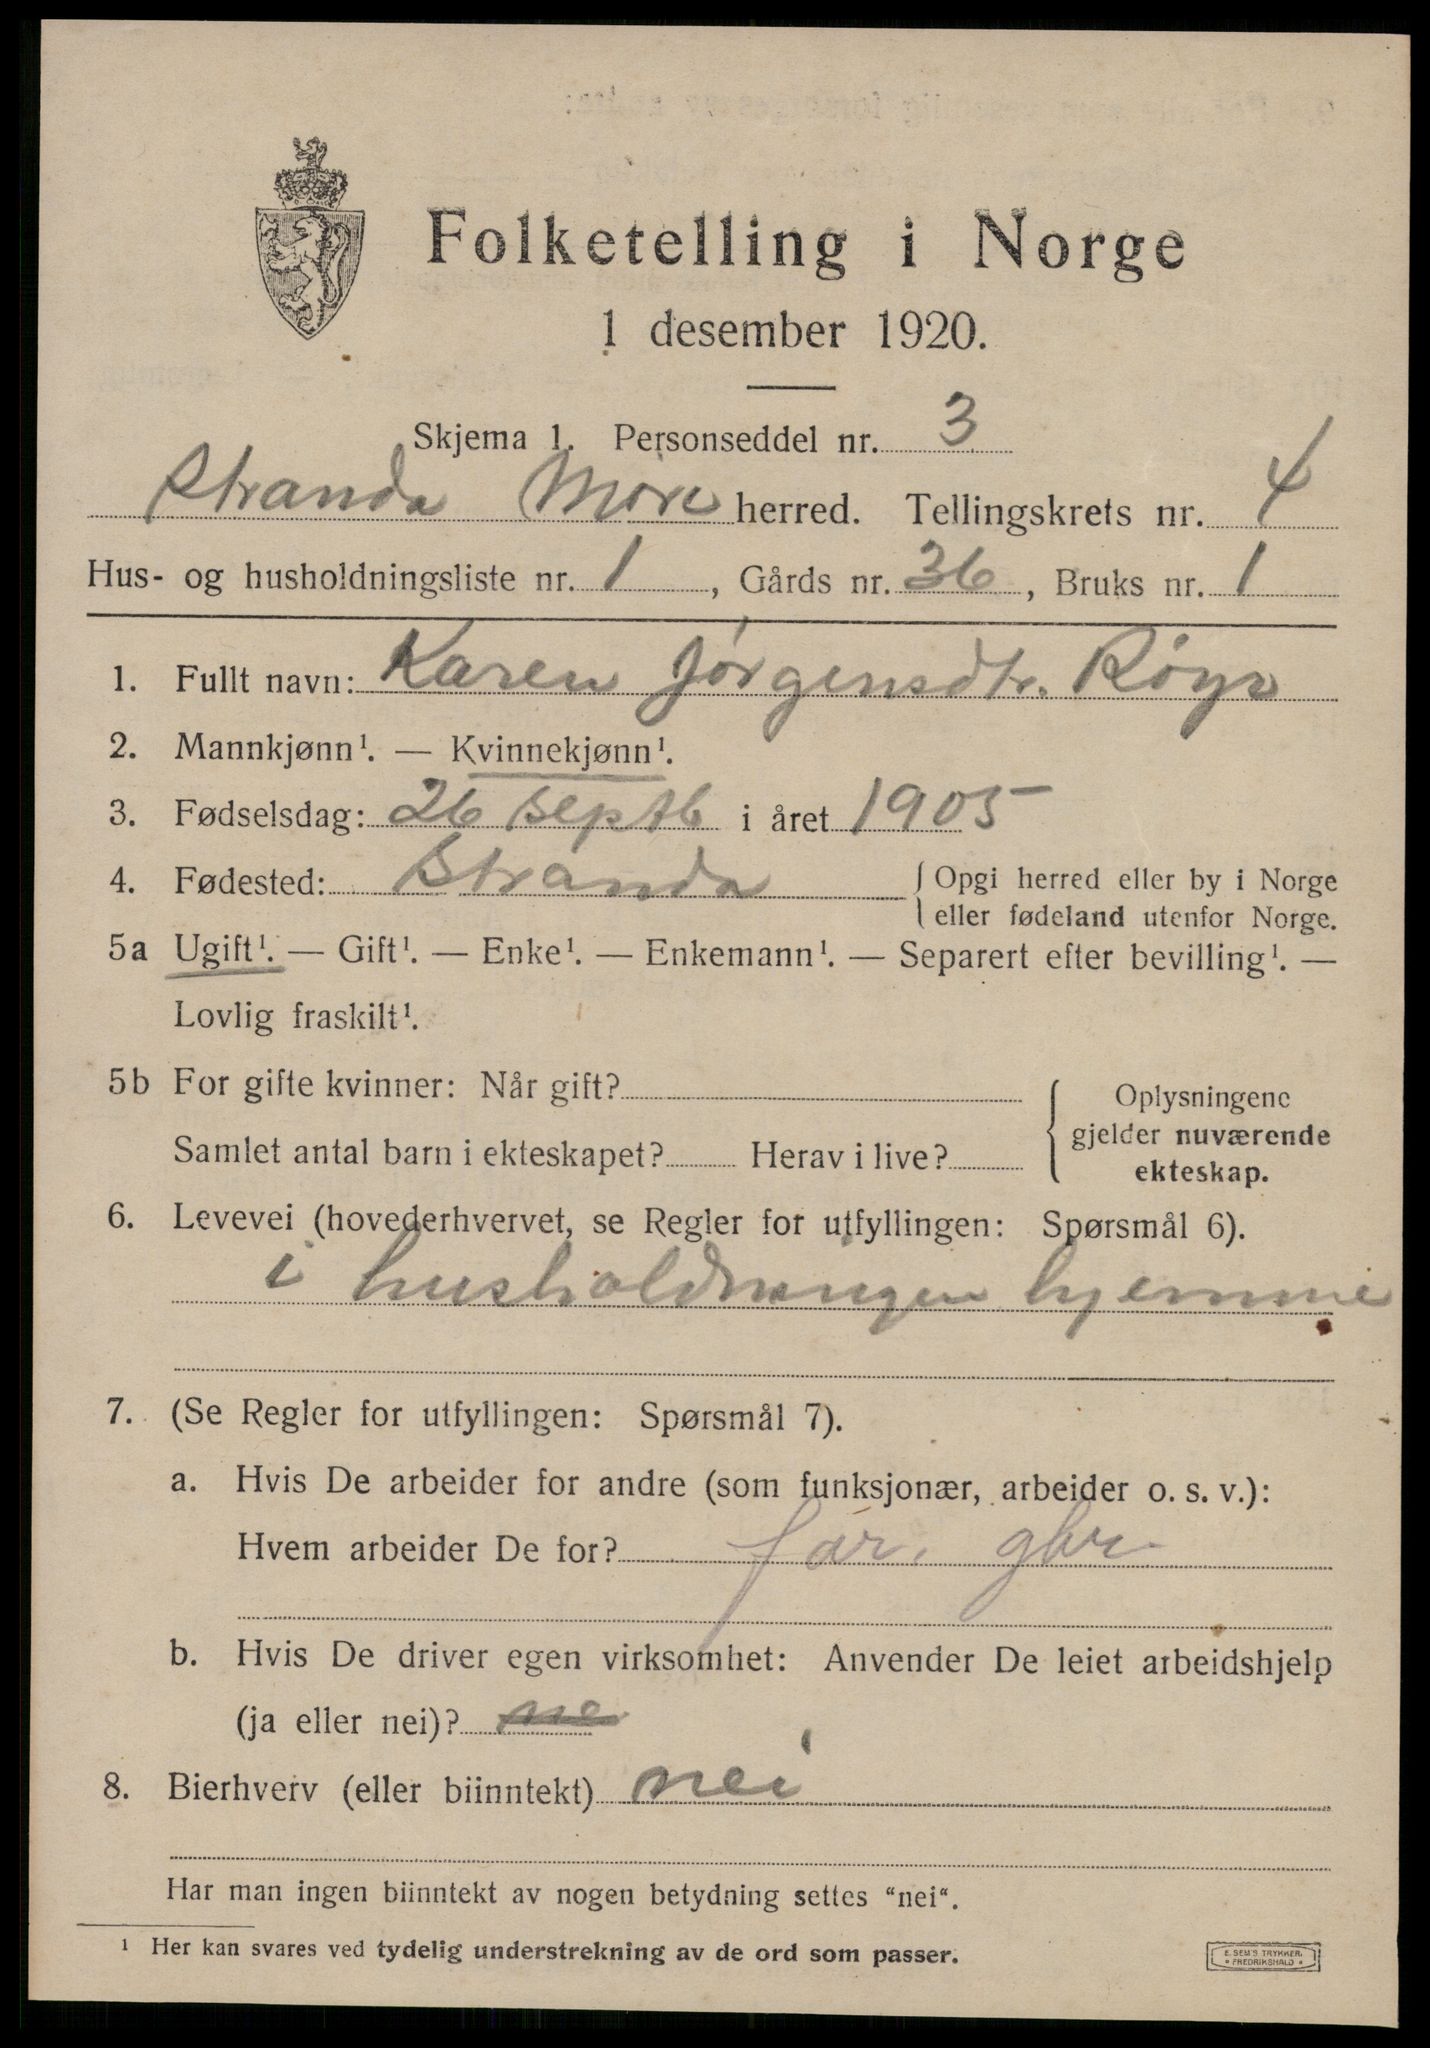 Folketelling i Norge
1 desember 1920.
Skjema 1. Personseddel nr. 3
Stranda Möre herred. Tellingskrets nr. 4
Hus- og husholdningsliste nr. 1, Gårds nr. 36, Bruks nr. 1
1. Fullt navn: Karen Jørgensdtr. Röys
2. Mannkjønn¹. — Kvinnekjønn¹.
3. Fødselsdag: 26 septb i året 1905
4. Fødested: Stranda { Opgi herred eller by i Norge
eller fødeland utenfor Norge.
5a Ugift¹. — Gift¹. — Enke¹. — Enkemann¹. — Separert efter bevilling¹. —
Lovlig fraskilt¹.
5b For gifte kvinner: Når gift? { Oplysningene
gjelder nuværende
Samlet antal barn i ekteskapet? Herav i live?
ekteskap.
6. Levevei (hovederhvervet, se Regler for utfyllingen: Spørsmål 6).
i husholdningen hjemme
7. (Se Regler for utfyllingen: Spørsmål 7).
a. Hvis De arbeider for andre (som funksjonær, arbeider o. s. v.):
Hvem arbeider De for? far, gbr.
b. Hvis De driver egen virksomhet: Anvender De leiet arbeidshjelp
(ja eller nei)?
8. Bierhverv (eller biinntekt) nei
Har man ingen biinntekt av nogen betydning settes “nei“.
¹ Her kan svares ved tydelig understrekning av de ord som passer.
E. SEM'S TRYKKERI
* FREDRIKSHALD *